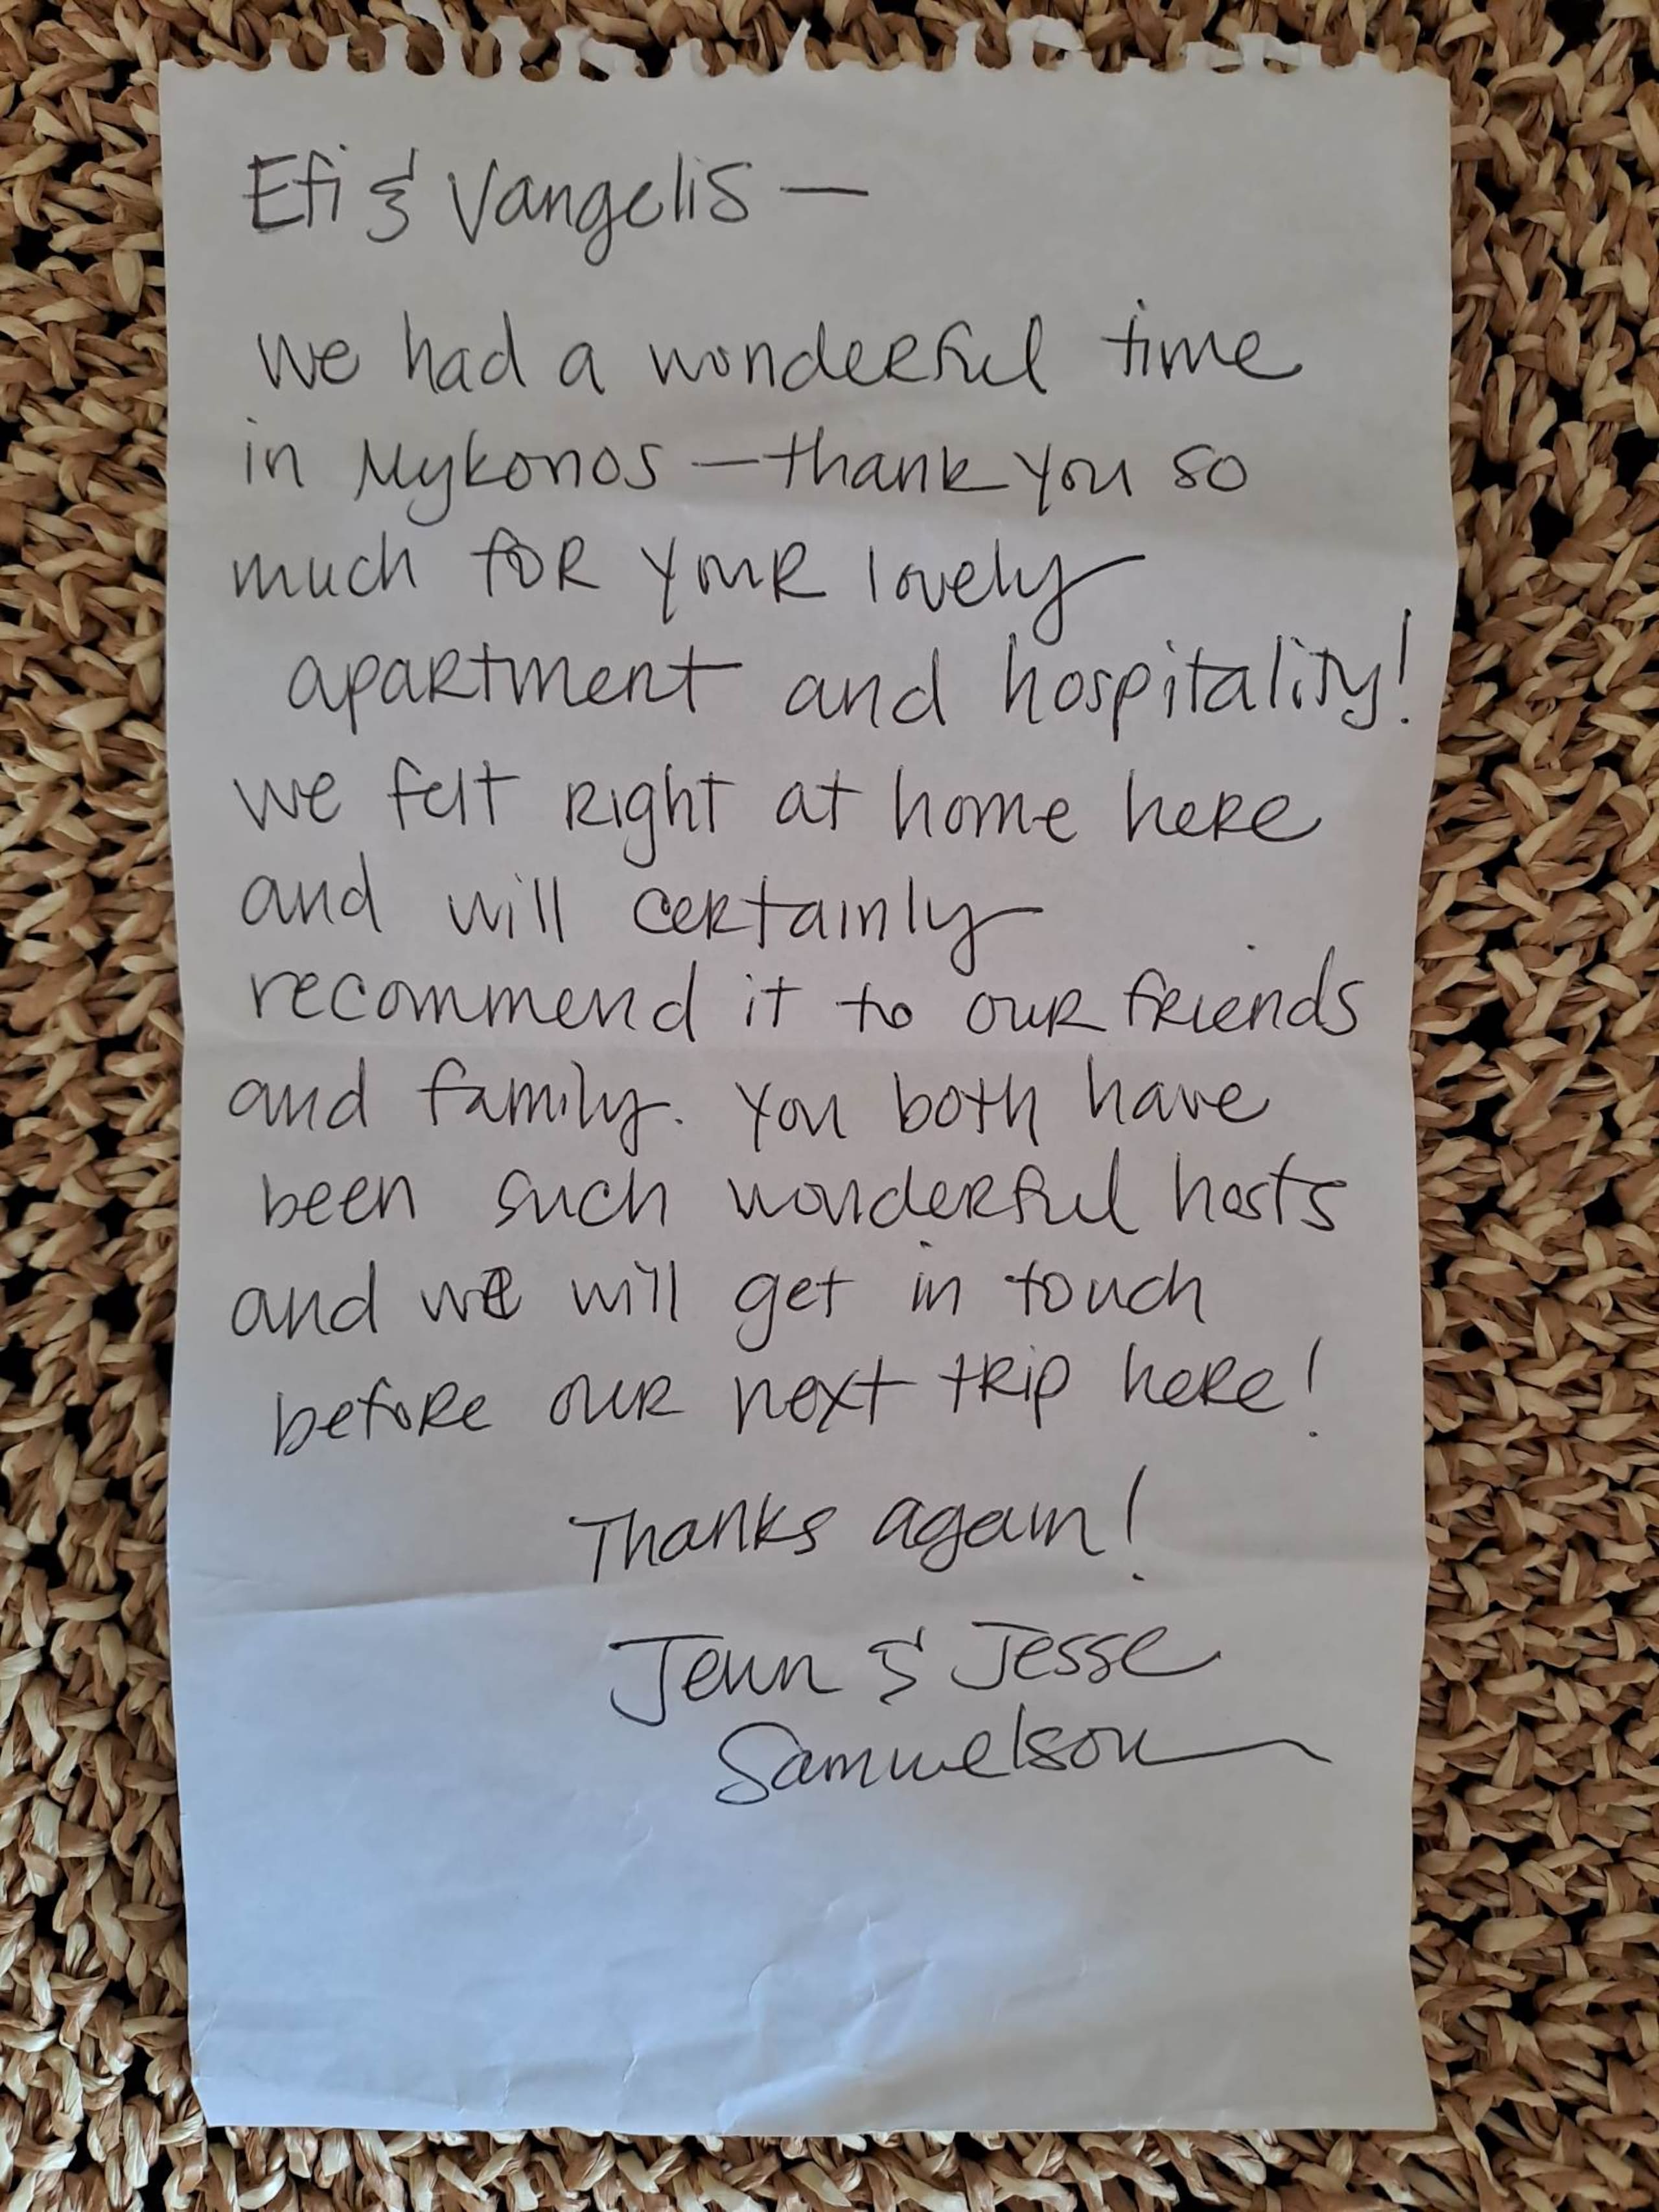 Efi & Vangelis —
we had a wonderful time
in Mykonos — thank you so
much for your lovely
apartment and hospitality!
we felt right at home here
and will certainly
recommend it to our friends
and family. you both have
been such wonderful hosts
and we will get in touch
before our next trip here!
Thanks again!
Jenn & Jesse
Samuelson